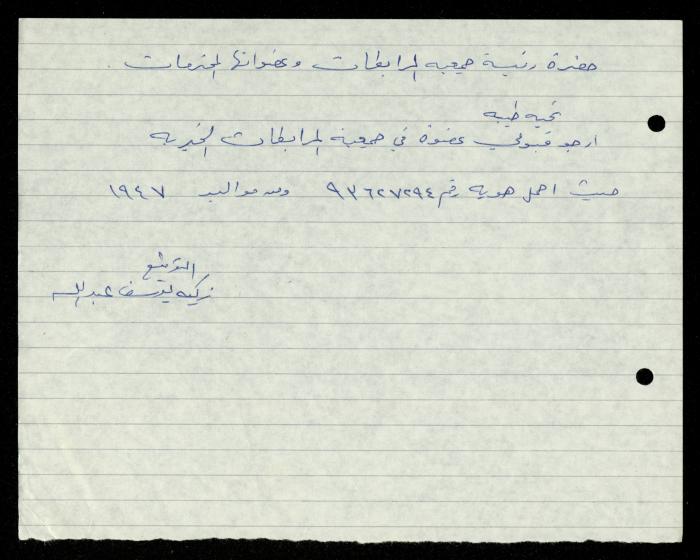 حضرة رئيسة جمعية المرابطات وعضواتها المحترمات .
تحيه طيبه
ارجو قبولي عضوة في جمعية المرابطات الخيريه
حيث احمل هويه رقم ٩٣٦٢٧٢٩٤ ومن مواليد ١٩٤٧
التوقيع
زكيه يوسف عبدالله